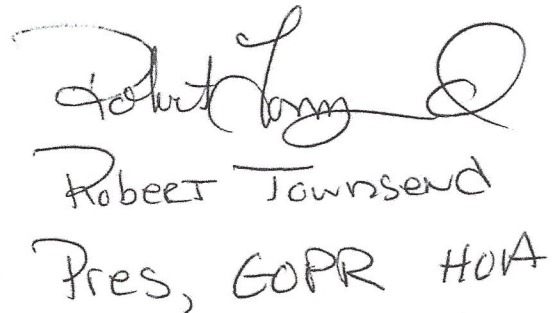 Robert Townsend
Robert Townsend
Pres, GOPR HOA